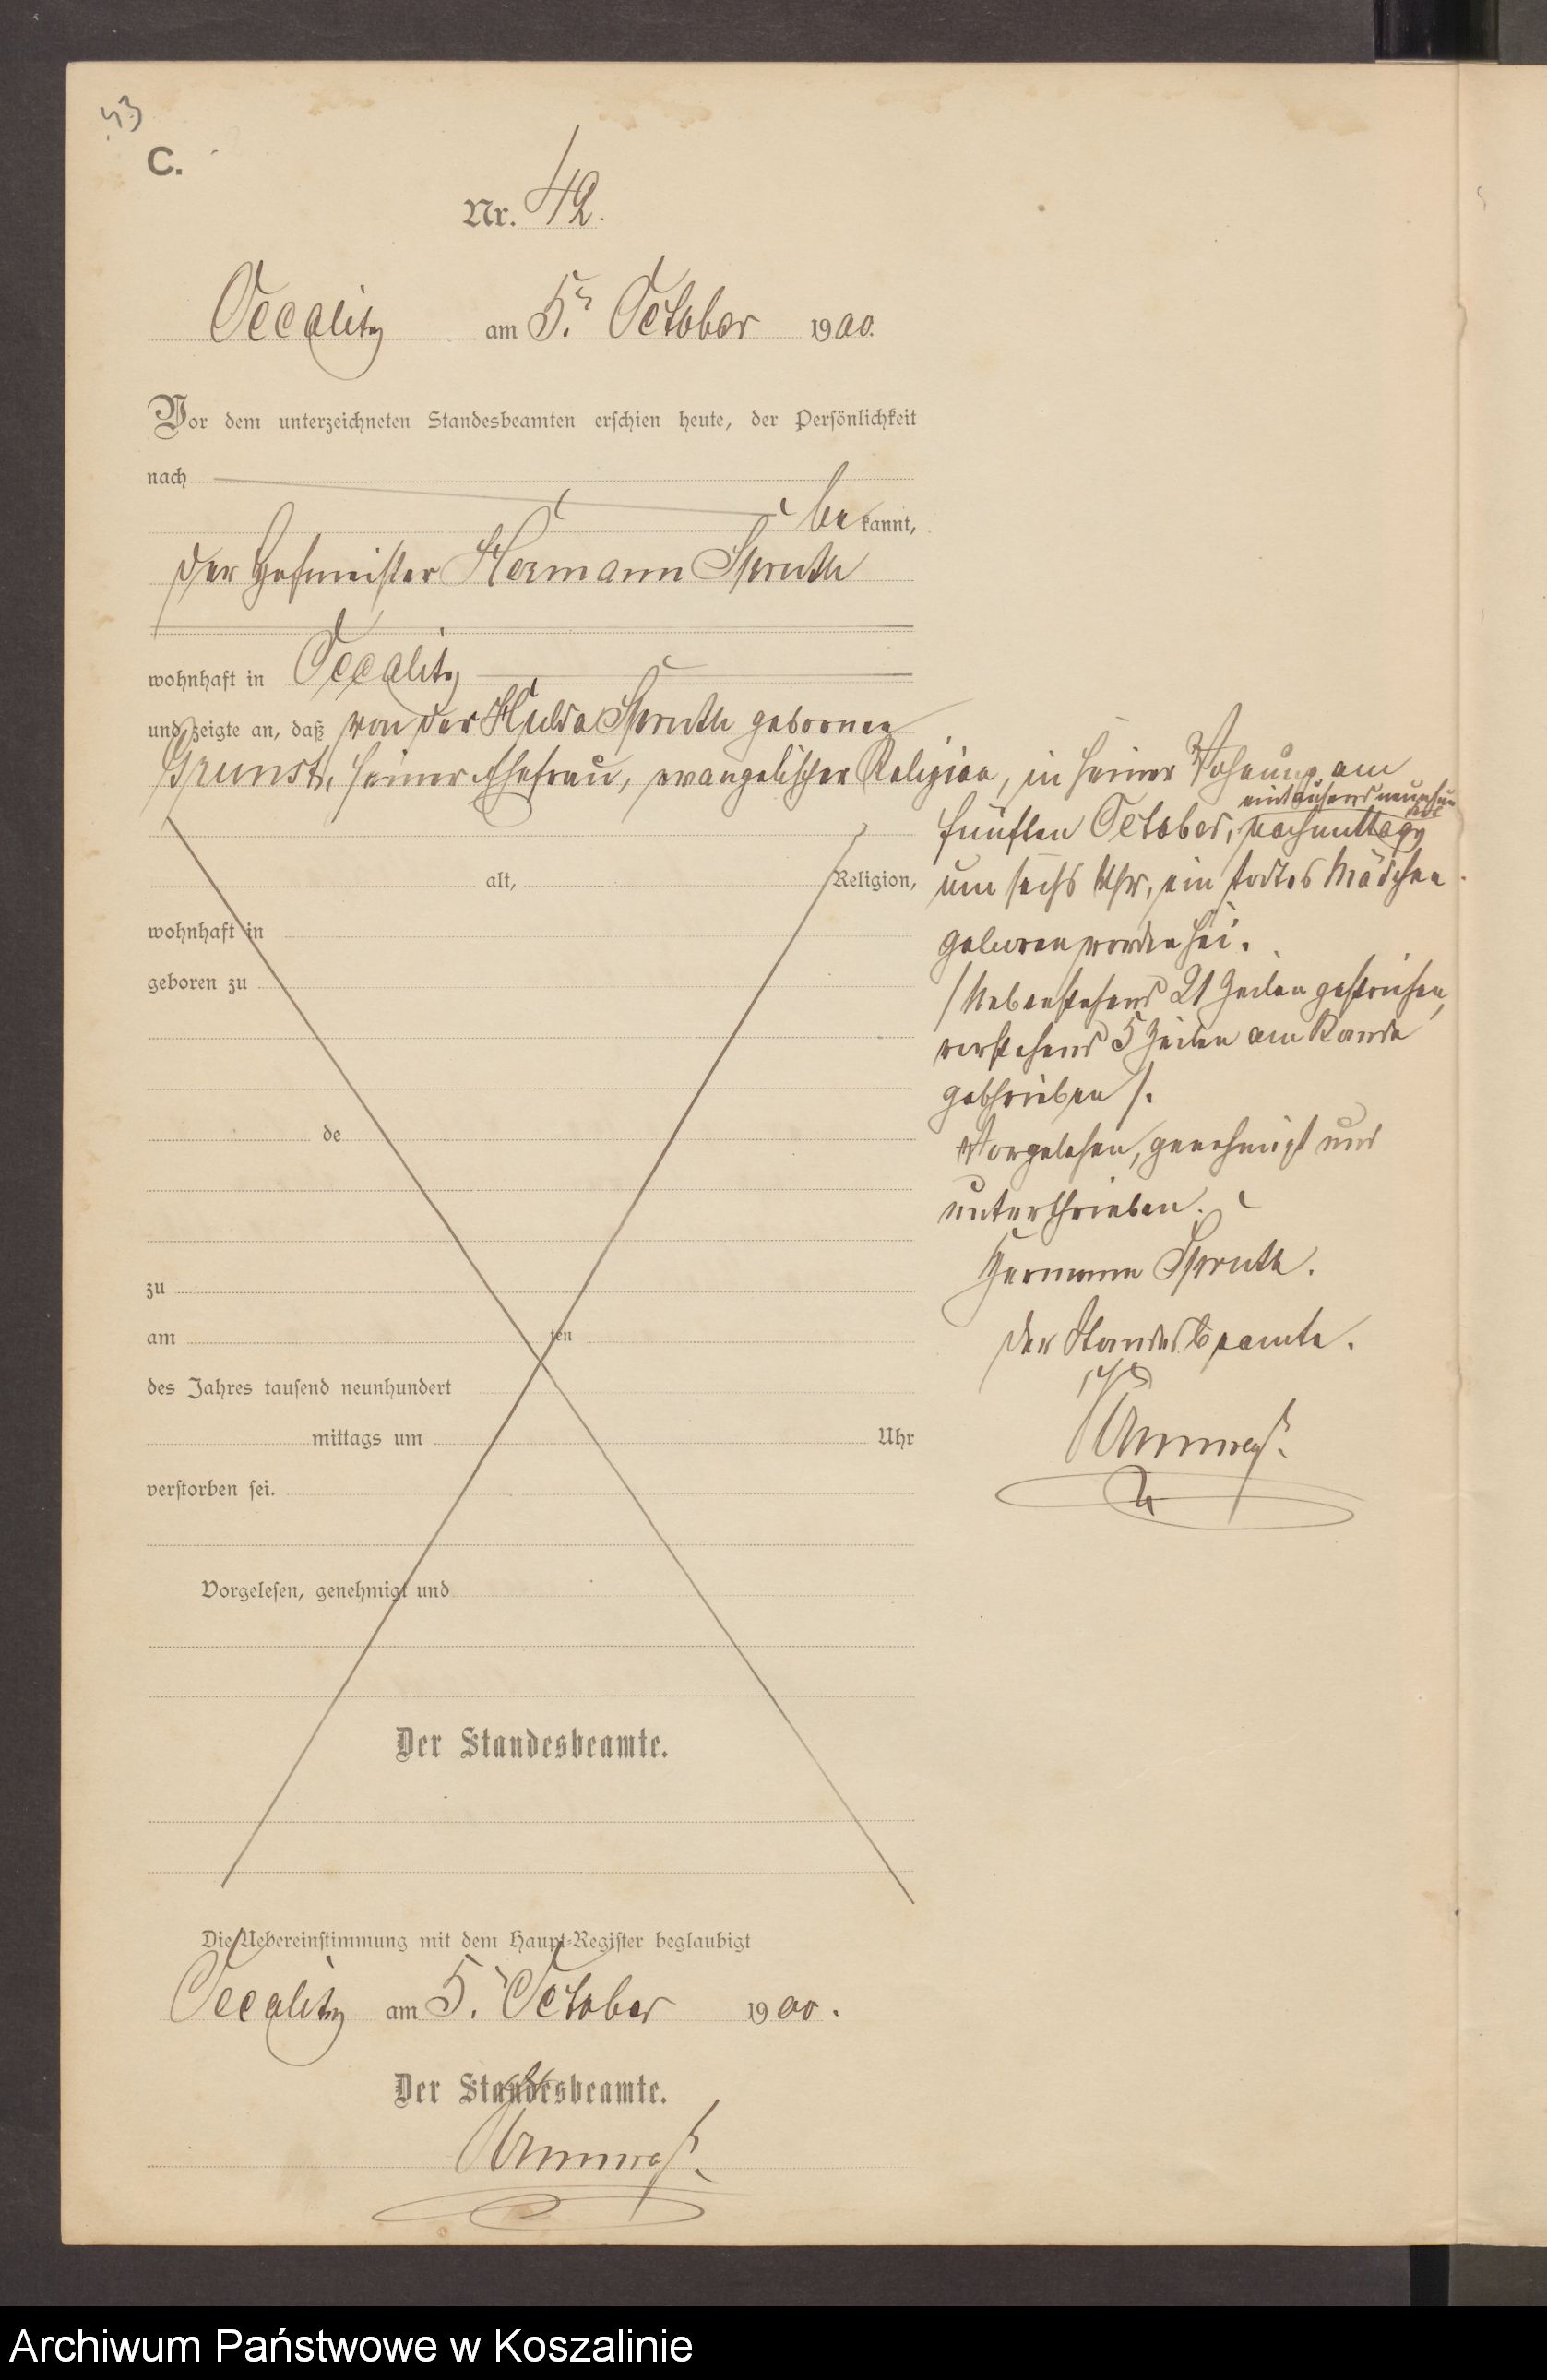 43
C.
Nr. 42.
Occalitz am 5. October 1900.
Vor dem unterzeichneten Standesbeamten erschien heute, der Persönlichkeit
nach
bekannt,
der Hofmeister Hermann Spruth
wohnhaft in Occalitz
und zeigte an, daß von der Hulda Spruth geborenen
seiner Ehefrau, evangelischer Religion, in seiner Wohnung am
eintausendneunhundert
fünften October, nachmittags
um sechs Uhr, ein todtes Mädchen
geboren worden sei.
/Nebenstehend 21 Zeilen gestrichen,
vorstehend 5 Zeilen am Rande
geschrieben/.
Vorgelesen, genehmigt und
unterschrieben.
Hermann Spruth.
Der Standesbeamte.
alt, Religion,
wohnhaft in
geboren zu
de
zu
am ten
des Jahres tausend neunhundert
mittags um Uhr
verstorben sei.
Vorgelesen, genehmigt und
Der Standesbeamte.
Die Uebereinstimmung mit dem Haupt-Register beglaubigt
Occalitz am 5. October 1900.
Der Standesbeamte.
Archiwum Państwowe w Koszalinie